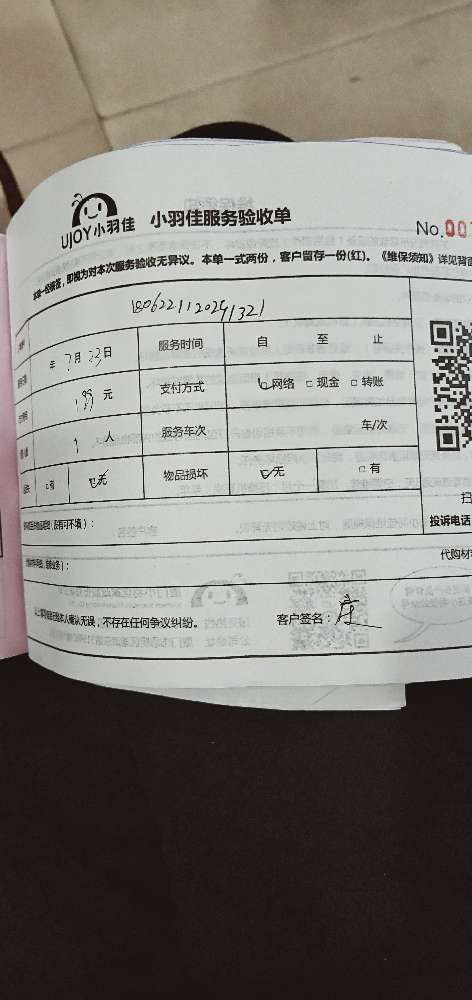 UJOY小羽佳 小羽佳服务验收单
No.00
本单一经签名，即视为对本次服务验收无异议。本单一式两份，客户留存一份(红)。《维保须知》详见背面
1806221120241321
年 7月 23日 服务时间 自 至 止
199 元 支付方式 网络 □ 现金 □ 转账
1 人 服务车次 车/次
□有 无 物品损坏 无 □有
投诉电话
代购材料
确认无误，不存在任何争议纠纷。 客户签名：